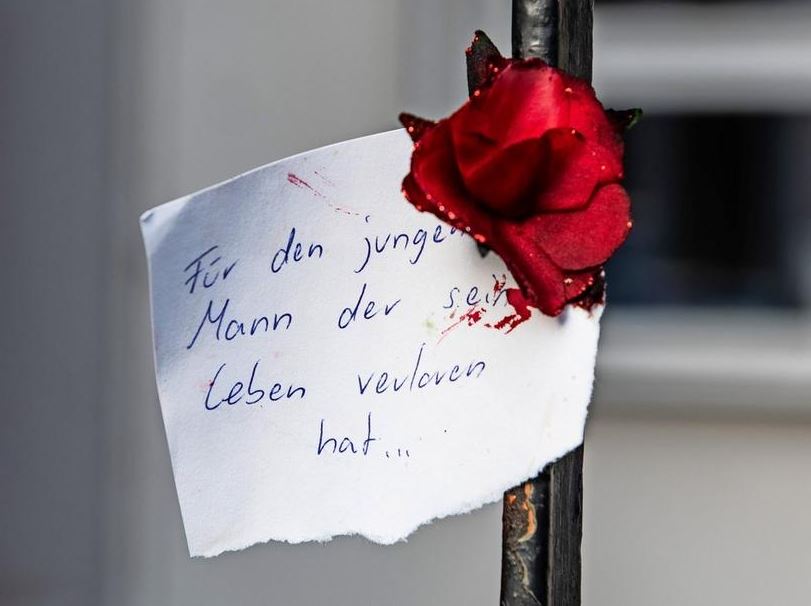 Für den jungen
Mann der sein
Leben verloren
hat...